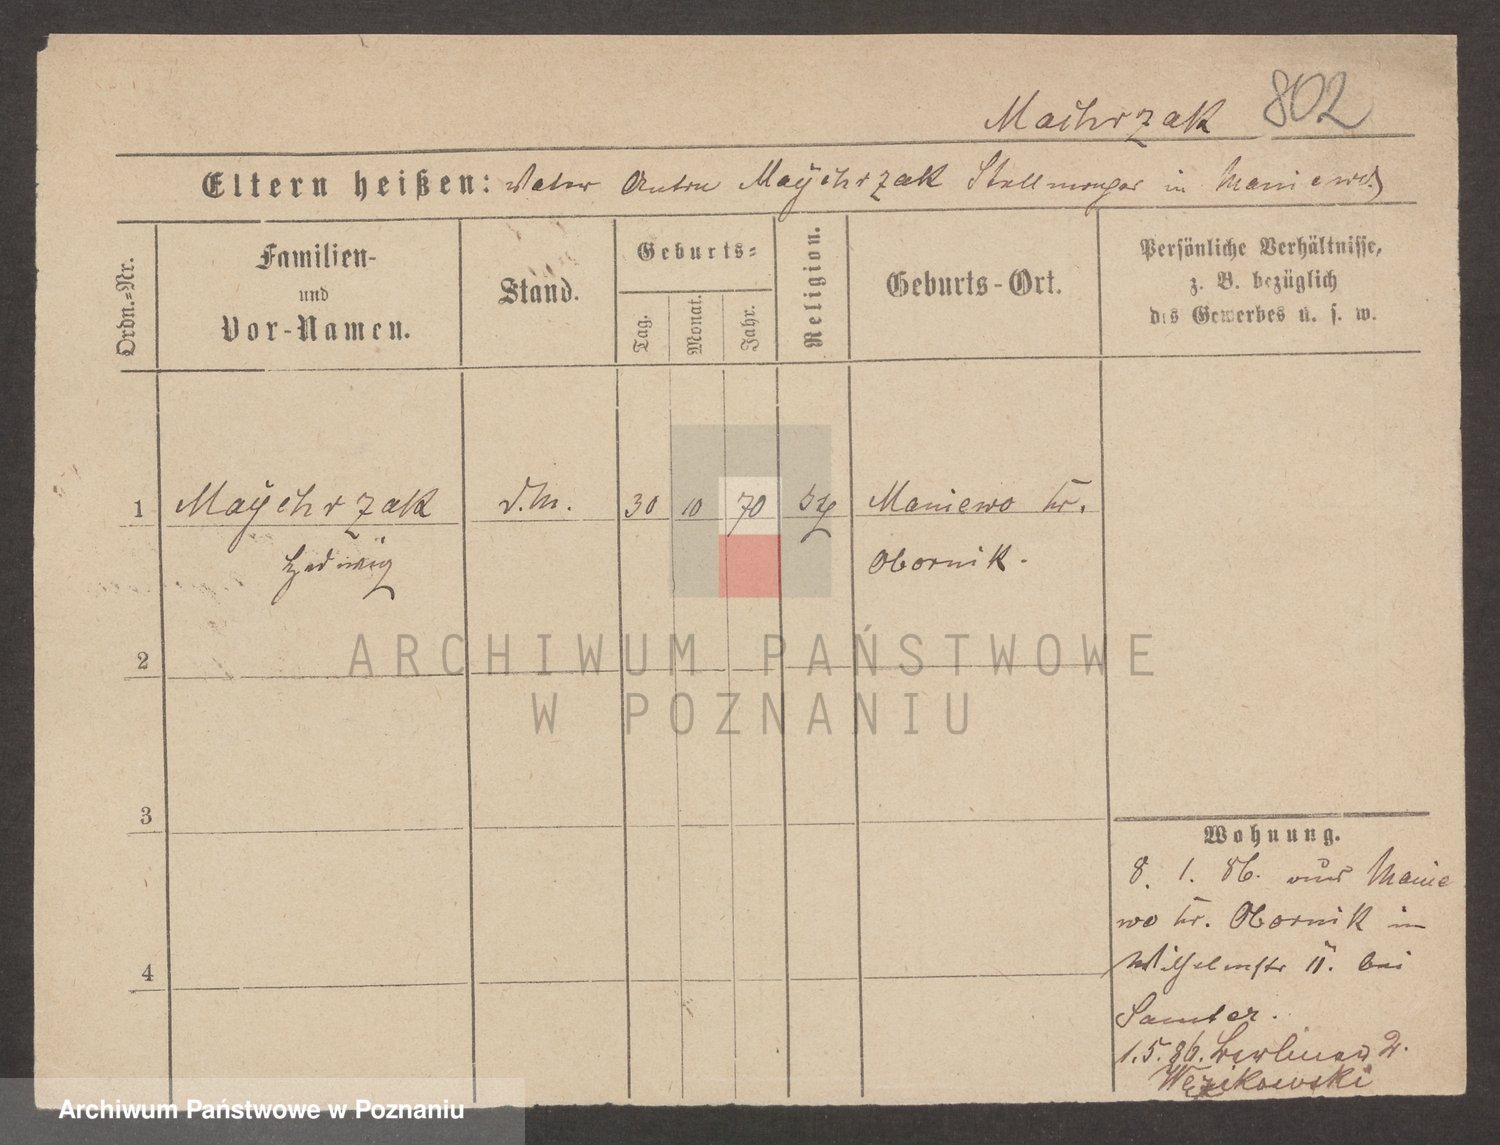 Maihrzak 802
Eltern heißen: Vater Anton Maÿchrzak Stellmacher in Maniewo
Ordn.-Nr.
Familien-
und
Vor-Namen.
Stand.
Geburts-
Tag.
Monat.
Jahr.
Religion.
Geburts-Ort.
Persönliche Verhältnisse,
z. B. bezüglich
des Gewerbes u. s. w.
1 Maÿchrzak d.M. 30 10 70 Maniewo Kr.
Hedwig Obornik.
2
3
4
Wohnung.
8. 1. 86. aus Manie
wo Kr. Obornik in
Wilhelmstr 11. bei
Samter.
1.5.86. Berliner 2.
ARCHIWUM PAŃSTWOWE
W POZNANIU
Archiwum Państwowe w Poznaniu